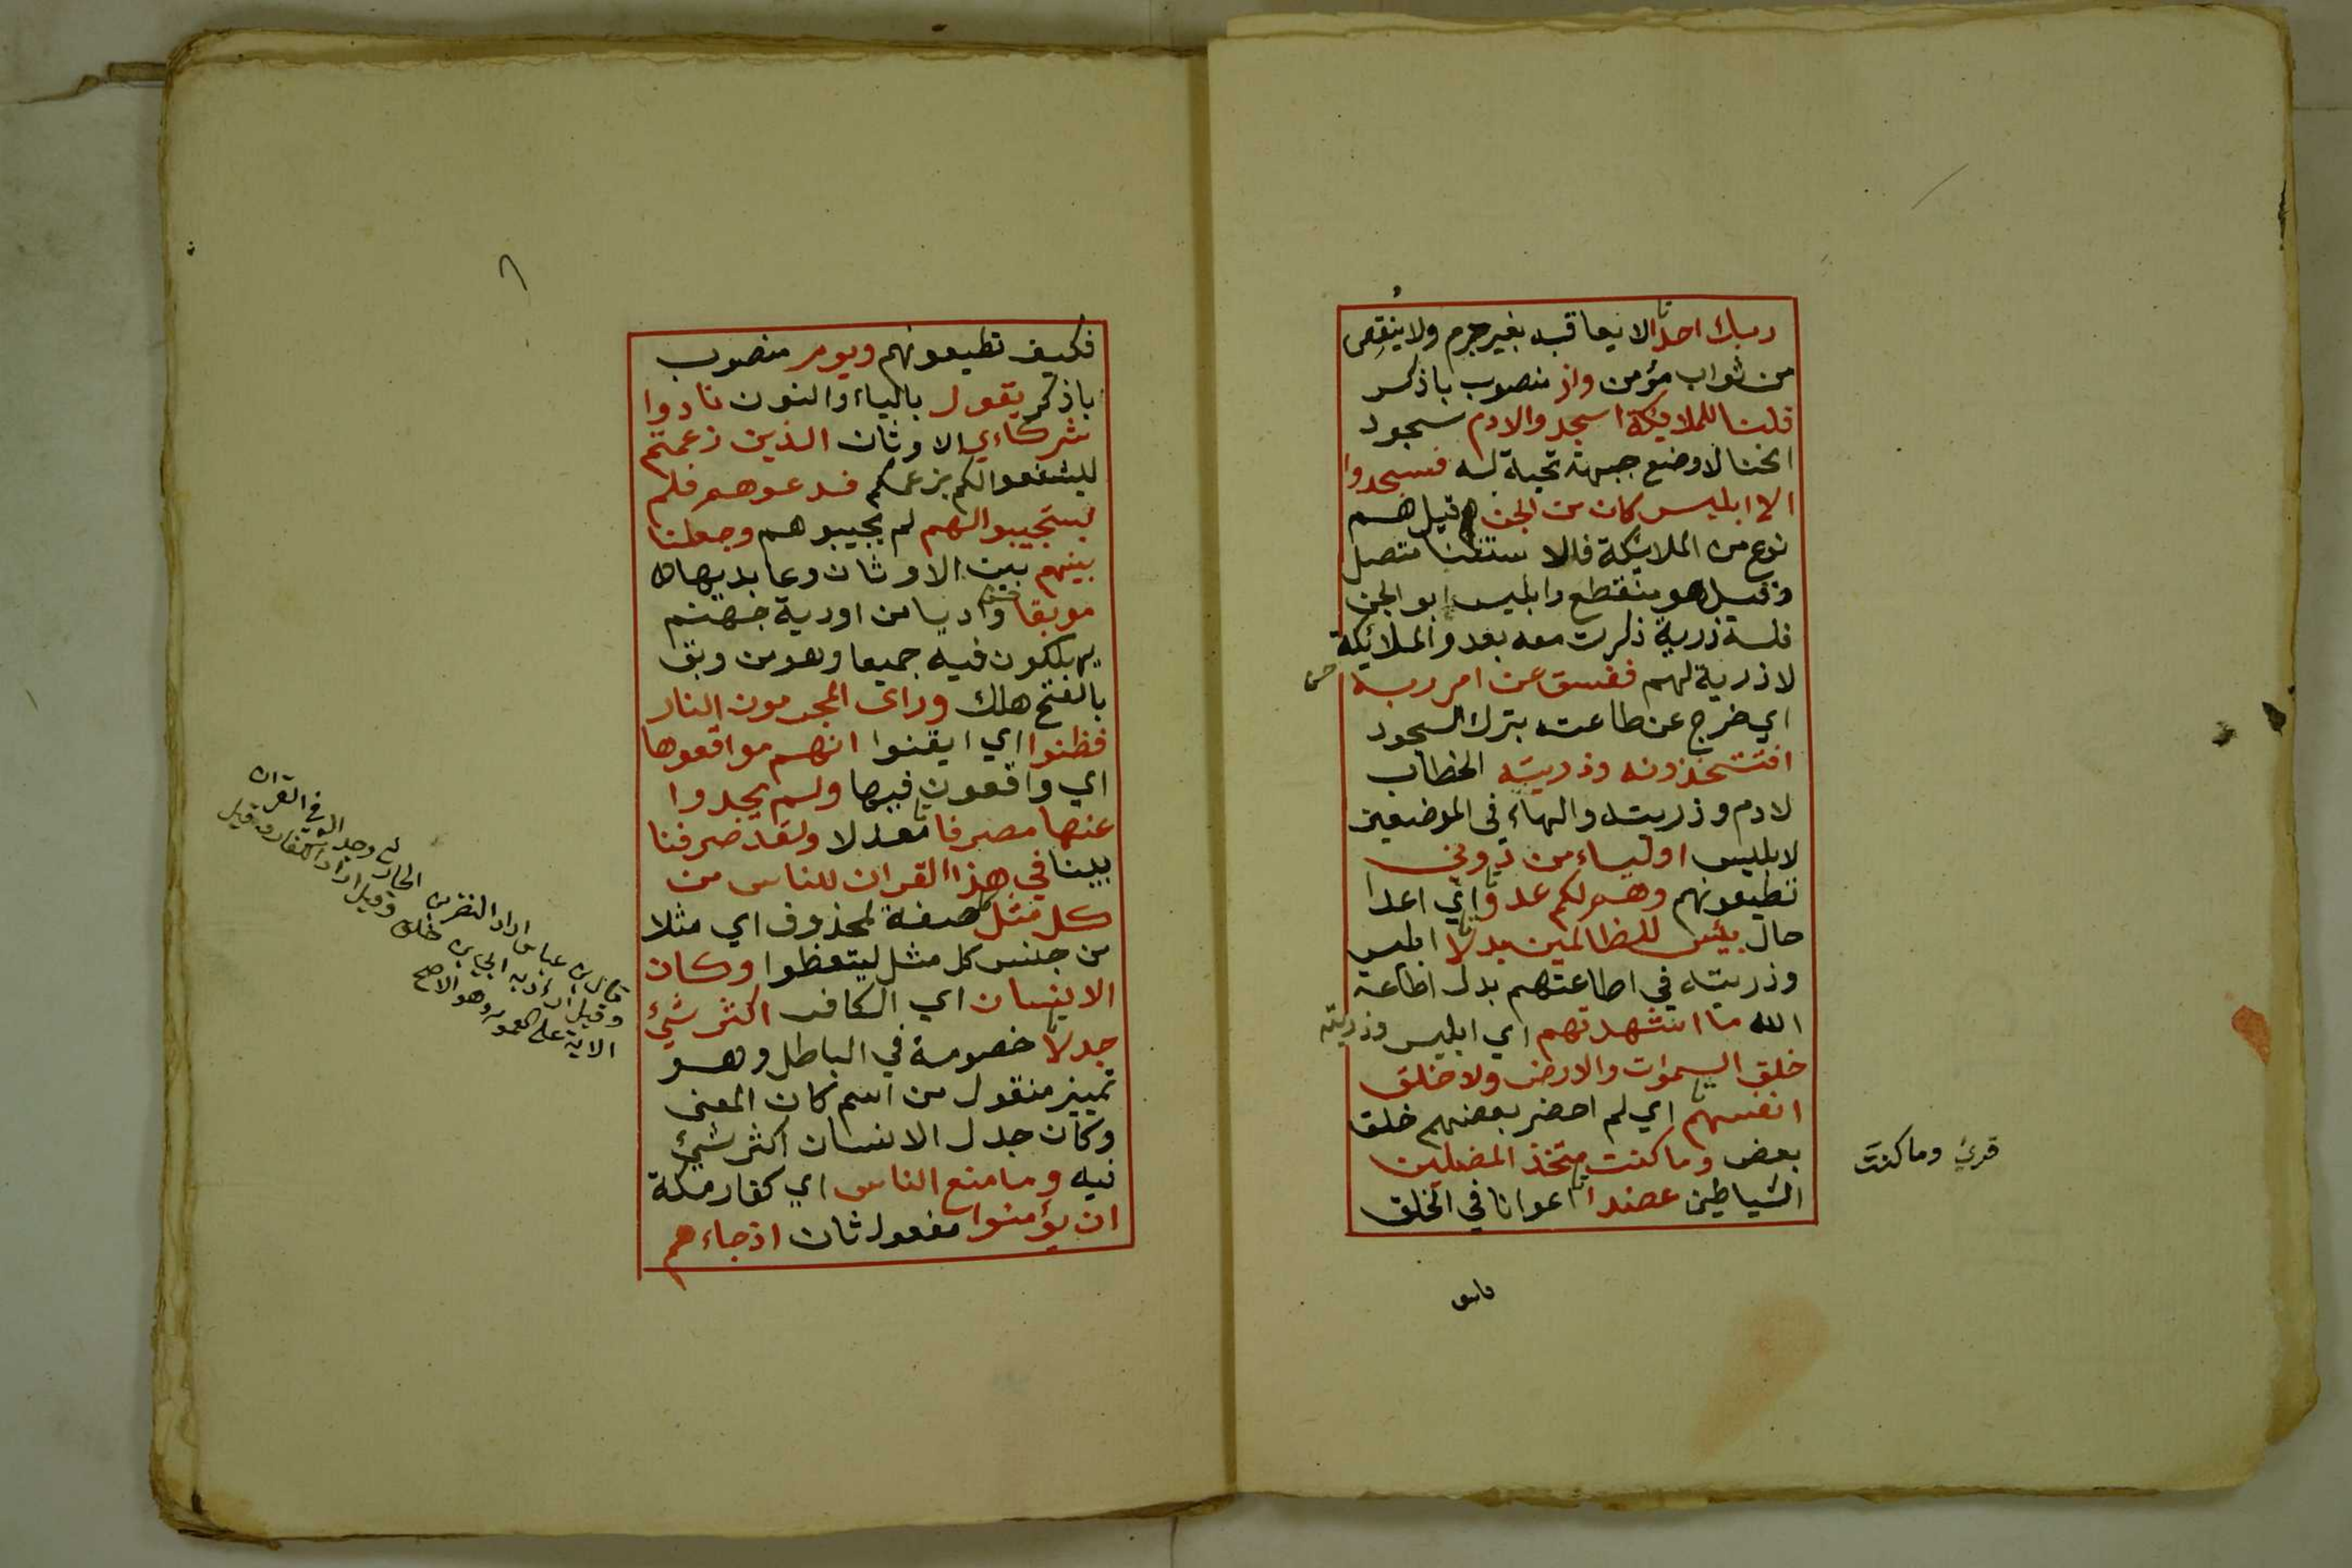 ربك احدا لا يعاقبه بغير جرم ولا ينقص
من ثواب مؤمن واذ منصوب باذكر
قلنا للملايكة اسجدوا لادم سجود
انحنا لا وضع جبهة تحية له فسجدوا
الا ابليس كان من الجن قيل هم
نوع من الملائكة فالاستثنا متصل
وقيل هو منقطع وابليس ابو الجن
فله ذرية ذكرت معه بعد والملائكة
لا ذرية لهم ففسق عن امر ربه
اي خرج عن طاعته بترك السجود
افتتخذونه وذريته الخطاب
لادم وذريته والهاء في الموضعين
لابليس اولياء من دوني
تطيعونهم وهم لكم عدو اي اعدا
حال بئس للظالمين بدلا ابليس
وذريته في اطاعتهم بدل اطاعة
الله ما اشهدتهم اي ابليس وذريته
خلق السموات والارض ولا خلق
انفسهم اي لم احضر بعضهم خلق
بعض وما كنت متخذ المضلين
الشياطين عضدا اعوانا في الخلق
قرئ وما كنت
فكيف تطيعونهم ويوم منصوب
باذكر يقول بالياء والنون نادوا
شركاءي الاوثان الذين زعمتم
ليشفعوا لكم بزعمكم فدعوهم فلم
يستجيبوا لهم لم يجيبوهم وجعلنا
بينهم بين الاوثان وعابديها
موبقا واديا من اودية جهنم
يهلكون فيه جميعا وهو من وبق
بالفتح هلك وراى المجرمون النار
فظنوا اي ايقنوا انهم مواقعوها
اي واقعون فيها ولم يجدوا
عنها مصرفا معدلا ولقد صرفنا
بينا في هذا القران للناس من
كل مثل صفة لمحذوف اي مثلا
من جنس كل مثل ليتعظوا وكان
الانسان اي الكافر اكثر شئ
جدلا خصومة في الباطل وهو
تمييز منقول من اسم كان المعنى
وكان جدل الانسان اكثر شئ
فيه وما منع الناس اي كفار مكة
ان يؤمنوا مفعول ثان اذ جاءهم
قال ابن عباس اراد النضر بن الحارث وجداله في القران
وقيل اراد به ابي بن خلف وقيل اراد الكفار وقيل
الاية على العموم وهو الاصح